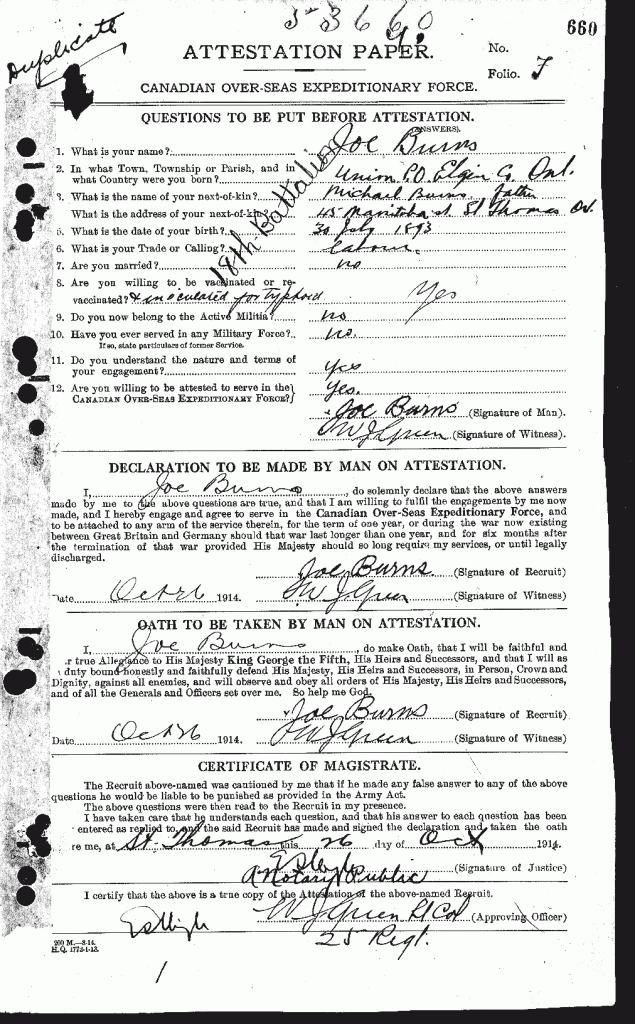 660
Duplicate
53660
ATTESTATION PAPER.
No.
Folio. J
CANADIAN OVER-SEAS EXPEDITIONARY FORCE.
QUESTIONS TO BE PUT BEFORE ATTESTATION.
(ANSWERS).
18th Battalion
1. What is your name? Joe Burns
2. In what Town, Township or Parish, and in what Country were you born? Union P.O. Elgin Co. Ont.
3. What is the name of your next-of-kin? Michael Burns, father
What is the address of your next-of-kin? 45 Manitoba st. St Thomas On.
5. What is the date of your birth? 30 July 1893
6. What is your Trade or Calling? Labour.
7. Are you married? no
8. Are you willing to be vaccinated or re-vaccinated? & inoculated for typhoid Yes
9. Do you now belong to the Active Militia? no
10. Have you ever served in any Military Force? no.
If so, state particulars of former Service.
11. Do you understand the nature and terms of your engagement? yes
12. Are you willing to be attested to serve in the CANADIAN OVER-SEAS EXPEDITIONARY FORCE? Yes.
Joe Burns (Signature of Man).
W J Green (Signature of Witness).
DECLARATION TO BE MADE BY MAN ON ATTESTATION.
I, Joe Burns, do solemnly declare that the above answers
made by me to the above questions are true, and that I am willing to fulfil the engagements by me now
made, and I hereby engage and agree to serve in the Canadian Over-Seas Expeditionary Force, and
to be attached to any arm of the service therein, for the term of one year, or during the war now existing
between Great Britain and Germany should that war last longer than one year, and for six months after
the termination of that war provided His Majesty should so long require my services, or until legally
discharged.
Joe Burns (Signature of Recruit)
Date Oct 26 1914. W J Green (Signature of Witness)
OATH TO BE TAKEN BY MAN ON ATTESTATION.
I, Joe Burns, do make Oath, that I will be faithful and
r true Allegiance to His Majesty King George the Fifth, His Heirs and Successors, and that I will as
duty bound honestly and faithfully defend His Majesty, His Heirs and Successors, in Person, Crown and
Dignity, against all enemies, and will observe and obey all orders of His Majesty, His Heirs and Successors,
and of all the Generals and Officers set over me. So help me God.
Joe Burns (Signature of Recruit)
Date Oct 26 1914. W J Green (Signature of Witness)
CERTIFICATE OF MAGISTRATE.
The Recruit above-named was cautioned by me that if he made any false answer to any of the above
questions he would be liable to be punished as provided in the Army Act.
The above questions were then read to the Recruit in my presence.
I have taken care that he understands each question, and that his answer to each question has been
entered as replied to, and the said Recruit has made and signed the declaration and taken the oath
re me, at St. Thomas this 26 day of Oct 1914.
(Signature of Justice)
a Notary Public
I certify that the above is a true copy of the Attestation of the above-named Recruit.
W J Green Lt Col (Approving Officer)
25 Regt.
200 M.—8-14.
H.Q. 1772-1-13.
1